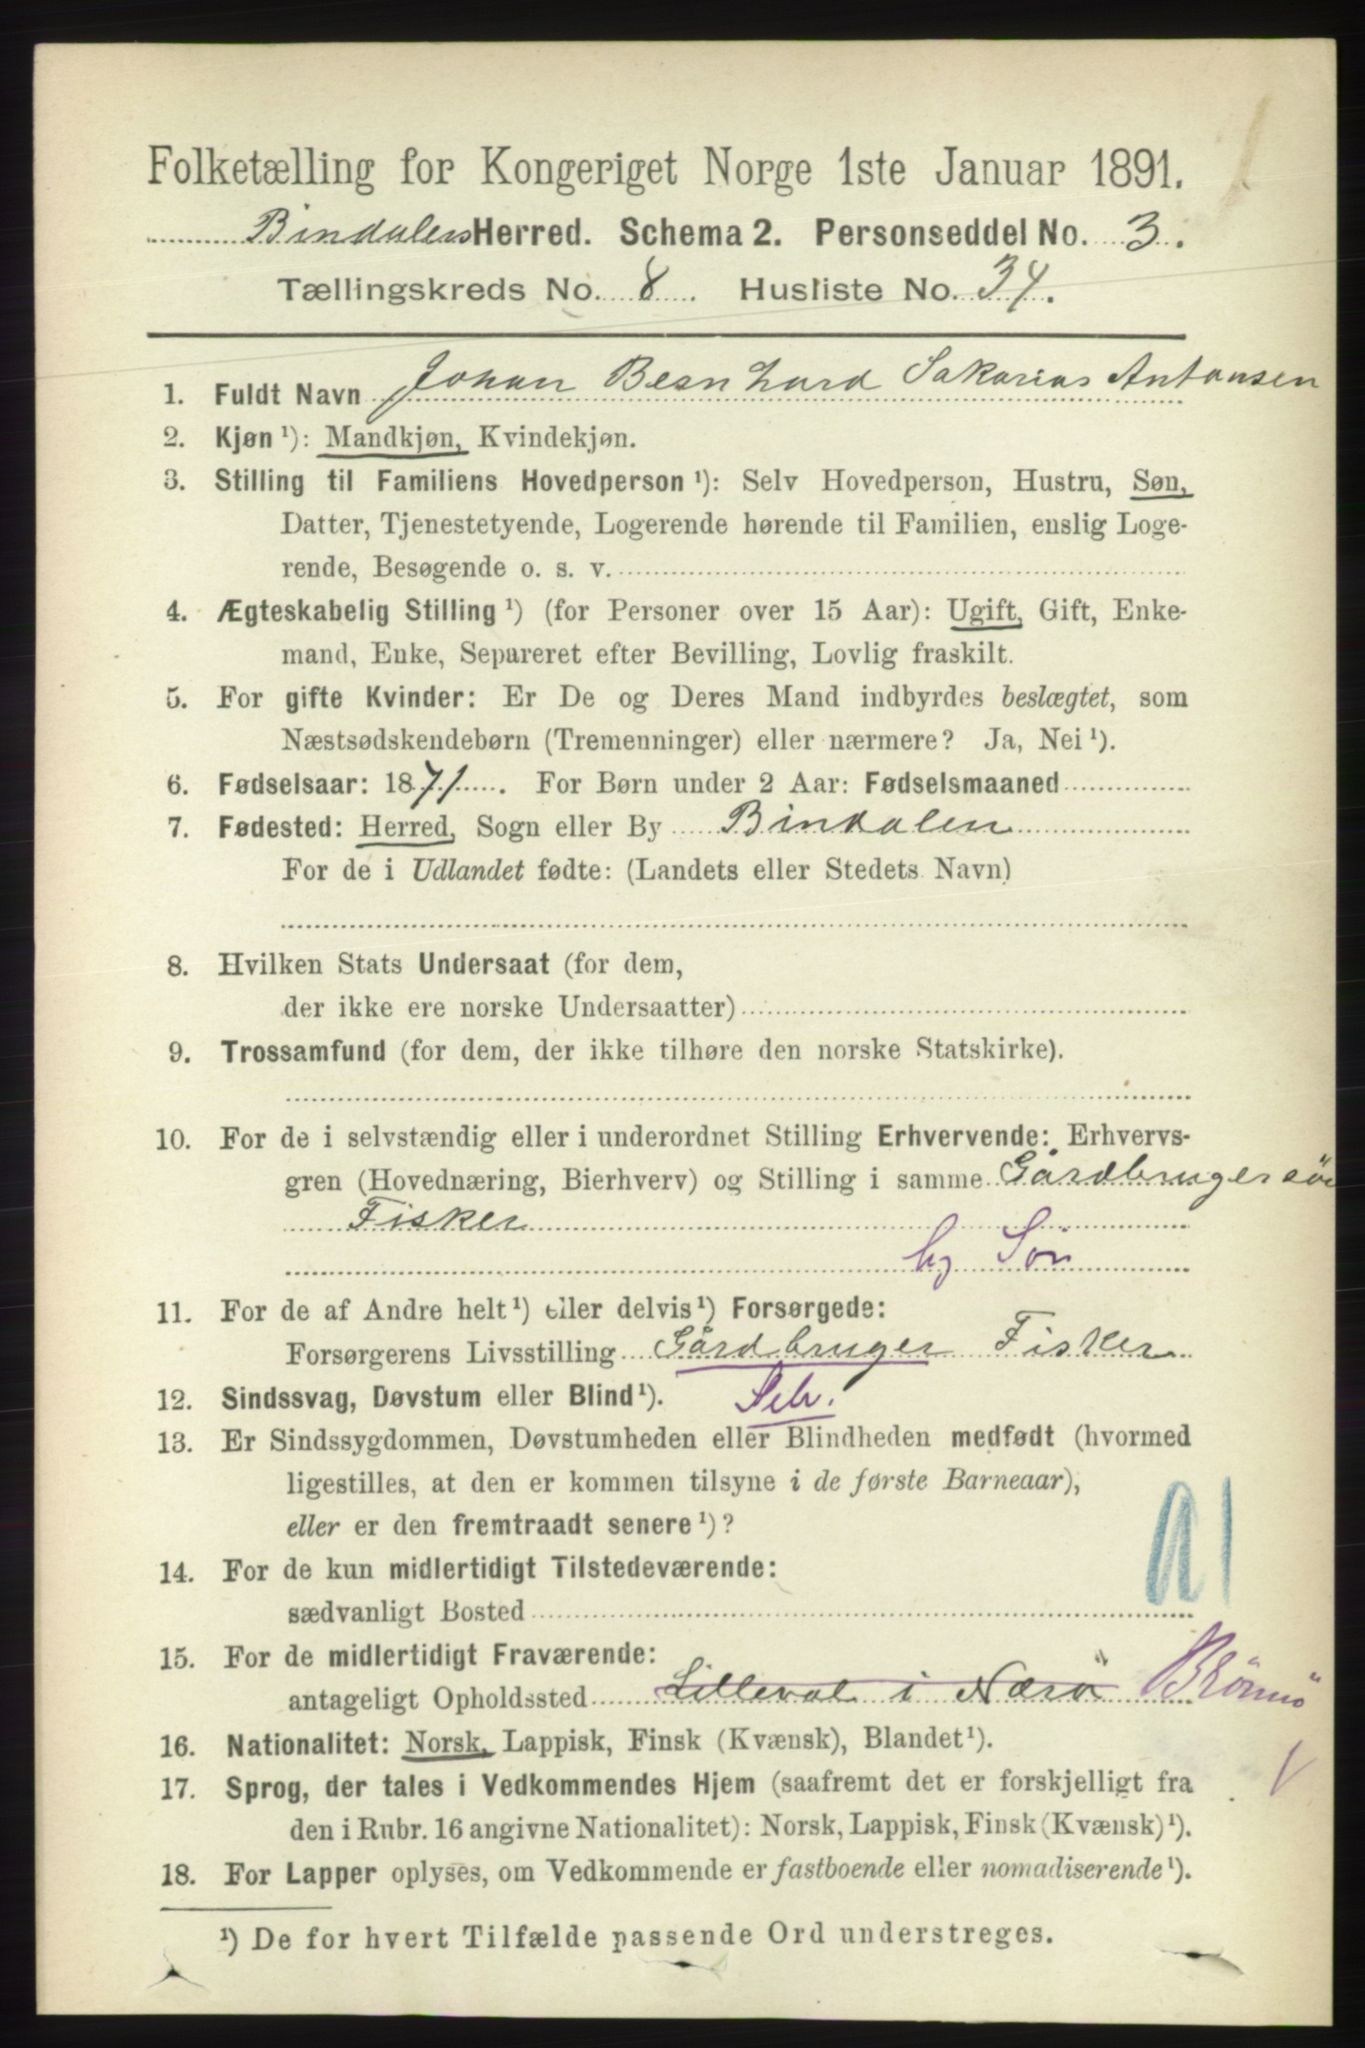 Folketælling for Kongeriget Norge 1ste Januar 1891.
Bindalens Herred. Schema 2. Personseddel No. 3.
Tællingskreds No. 8. Husliste No. 34.
1. Fuldt Navn Johan Bernhard Sakarias Antonsen
2. Kjøn ¹): Mandkjøn, Kvindekjøn.
3. Stilling til Familiens Hovedperson ¹): Selv Hovedperson, Hustru, Søn,
Datter, Tjenestetyende, Logerende hørende til Familien, enslig Loge-
rende, Besøgende o. s. v.
4. Ægteskabelig Stilling ¹) (for Personer over 15 Aar): Ugift, Gift, Enke-
mand, Enke, Separeret efter Bevilling, Lovlig fraskilt.
5. For gifte Kvinder: Er De og Deres Mand indbyrdes beslægtet, som
Næstsødskendebørn (Tremenninger) eller nærmere? Ja, Nei ¹).
6. Fødselsaar: 1871. For Børn under 2 Aar: Fødselsmaaned
7. Fødested: Herred, Sogn eller By Bindalen
For de i Udlandet fødte: (Landets eller Stedets Navn)
8. Hvilken Stats Undersaat (for dem,
der ikke ere norske Undersaatter)
9. Trossamfund (for dem, der ikke tilhøre den norske Statskirke).
10. For de i selvstændig eller i underordnet Stilling Erhvervende: Erhvervs-
gren (Hovednæring, Bierhverv) og Stilling i samme Gårdbruger søn
Fisker
hj Søn
11. For de af Andre helt ¹) eller delvis ¹) Forsørgede:
Forsørgerens Livsstilling Gårdbruger Fisker
12. Sindssvag, Døvstum eller Blind ¹). Selv.
13. Er Sindssygdommen, Døvstumheden eller Blindheden medfødt (hvormed
ligestilles, at den er kommen tilsyne i de første Barneaar),
eller er den fremtraadt senere ¹)?
14. For de kun midlertidigt Tilstedeværende:
sædvanligt Bosted
15. For de midlertidigt Fraværende:
antageligt Opholdssted Lilleval i Nærö Brönnö
16. Nationalitet: Norsk, Lappisk, Finsk (Kvænsk), Blandet ¹).
17. Sprog, der tales i Vedkommendes Hjem (saafremt det er forskjelligt fra
den i Rubr. 16 angivne Nationalitet): Norsk, Lappisk, Finsk (Kvænsk) ¹).
18. For Lapper oplyses, om Vedkommende er fastboende eller nomadiserende ¹).
¹) De for hvert Tilfælde passende Ord understreges.